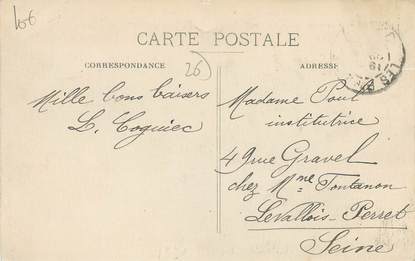 CARTE POSTALE
CORRESPONDANCE
ADRESSE
26
Mille bons baisers
L. Coguiec
Madame Poul
institutrice
49 rue Gravel
chez Mme Fontanon
Levallois-Perret
Seine